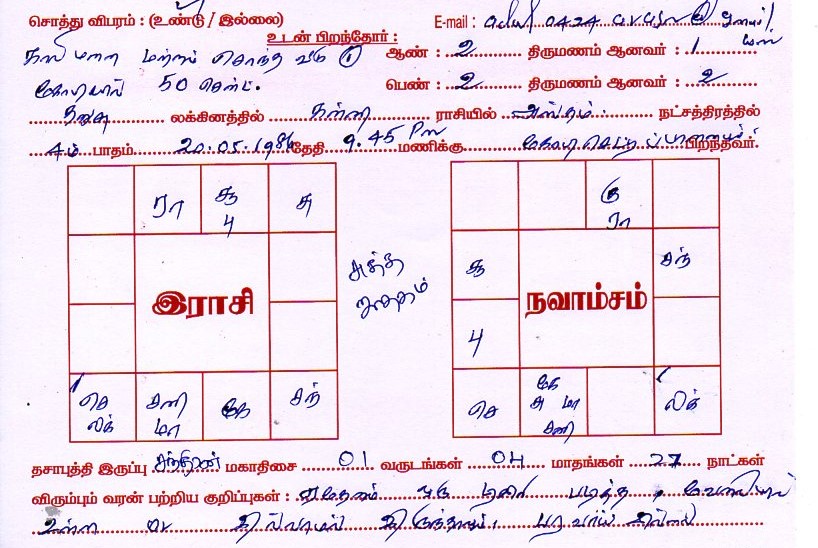 சொத்து விபரம் : (உண்டு / இல்லை) E-mail :
உடன் பிறந்தோர் :
மற்றும் சொந்த வீடு 1 ஆண் : 2 திருமணம் ஆனவர் : 1
50 சென்ட். பெண் : 2 திருமணம் ஆனவர் : 2
தனுசு லக்கினத்தில் கன்னி ராசியில் அஸ்தம் நட்சத்திரத்தில்
4ம் பாதம் 20.05.1986 தேதி 9.45 Pm மணிக்கு பிறந்தவர்.
ரா சூ பு சு
இராசி
செ லக் சனி மா கே சந்
அஸ்த
கு ரா
சூ சந்
நவாம்சம்
பு
செ கே சு மா சனி லக்
தசாபுத்தி இருப்பு சந்திரன் மகாதிசை 01 வருடங்கள் 04 மாதங்கள் 27 நாட்கள்
விரும்பும் வரன் பற்றிய குறிப்புகள் : ஏதேனும் ஒரு டிகிரி படித்த, வேலையில்
உள்ள இல்லாமல் இருந்தாலும் பரவாயில்லை